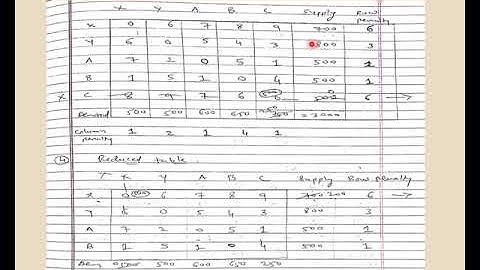 X Y A B C Supply Row penalty
X 0 6 7 8 9 700 6
Y 6 0 5 4 3 800 3
A 7 2 0 5 1 500 1
B 1 5 1 0 4 500 1
X C 8 9 7 6 500 6
Demand 500 500 600 650 = 3000
Column penalty 1 2 1 4 1
4 Reduced table
X Y A B C Supply Row penalty
X 0 500 6 7 8 9 700 200 6
Y 6 0 5 4 3 800 3
A 7 2 0 5 1 500 1
B 1 5 1 0 4 500 1
500 600 650 250